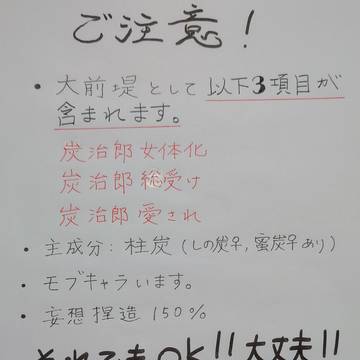 ご注意!
・大前堤として以下3項目が
含まれます。
炭治郎女体化
炭治郎総受け
炭治郎愛され
・主成分:柱炭(しの炭子,蜜炭子あり)
・モブキャラいます。
・妄想捏造150%
それでもOK!!大丈夫!!